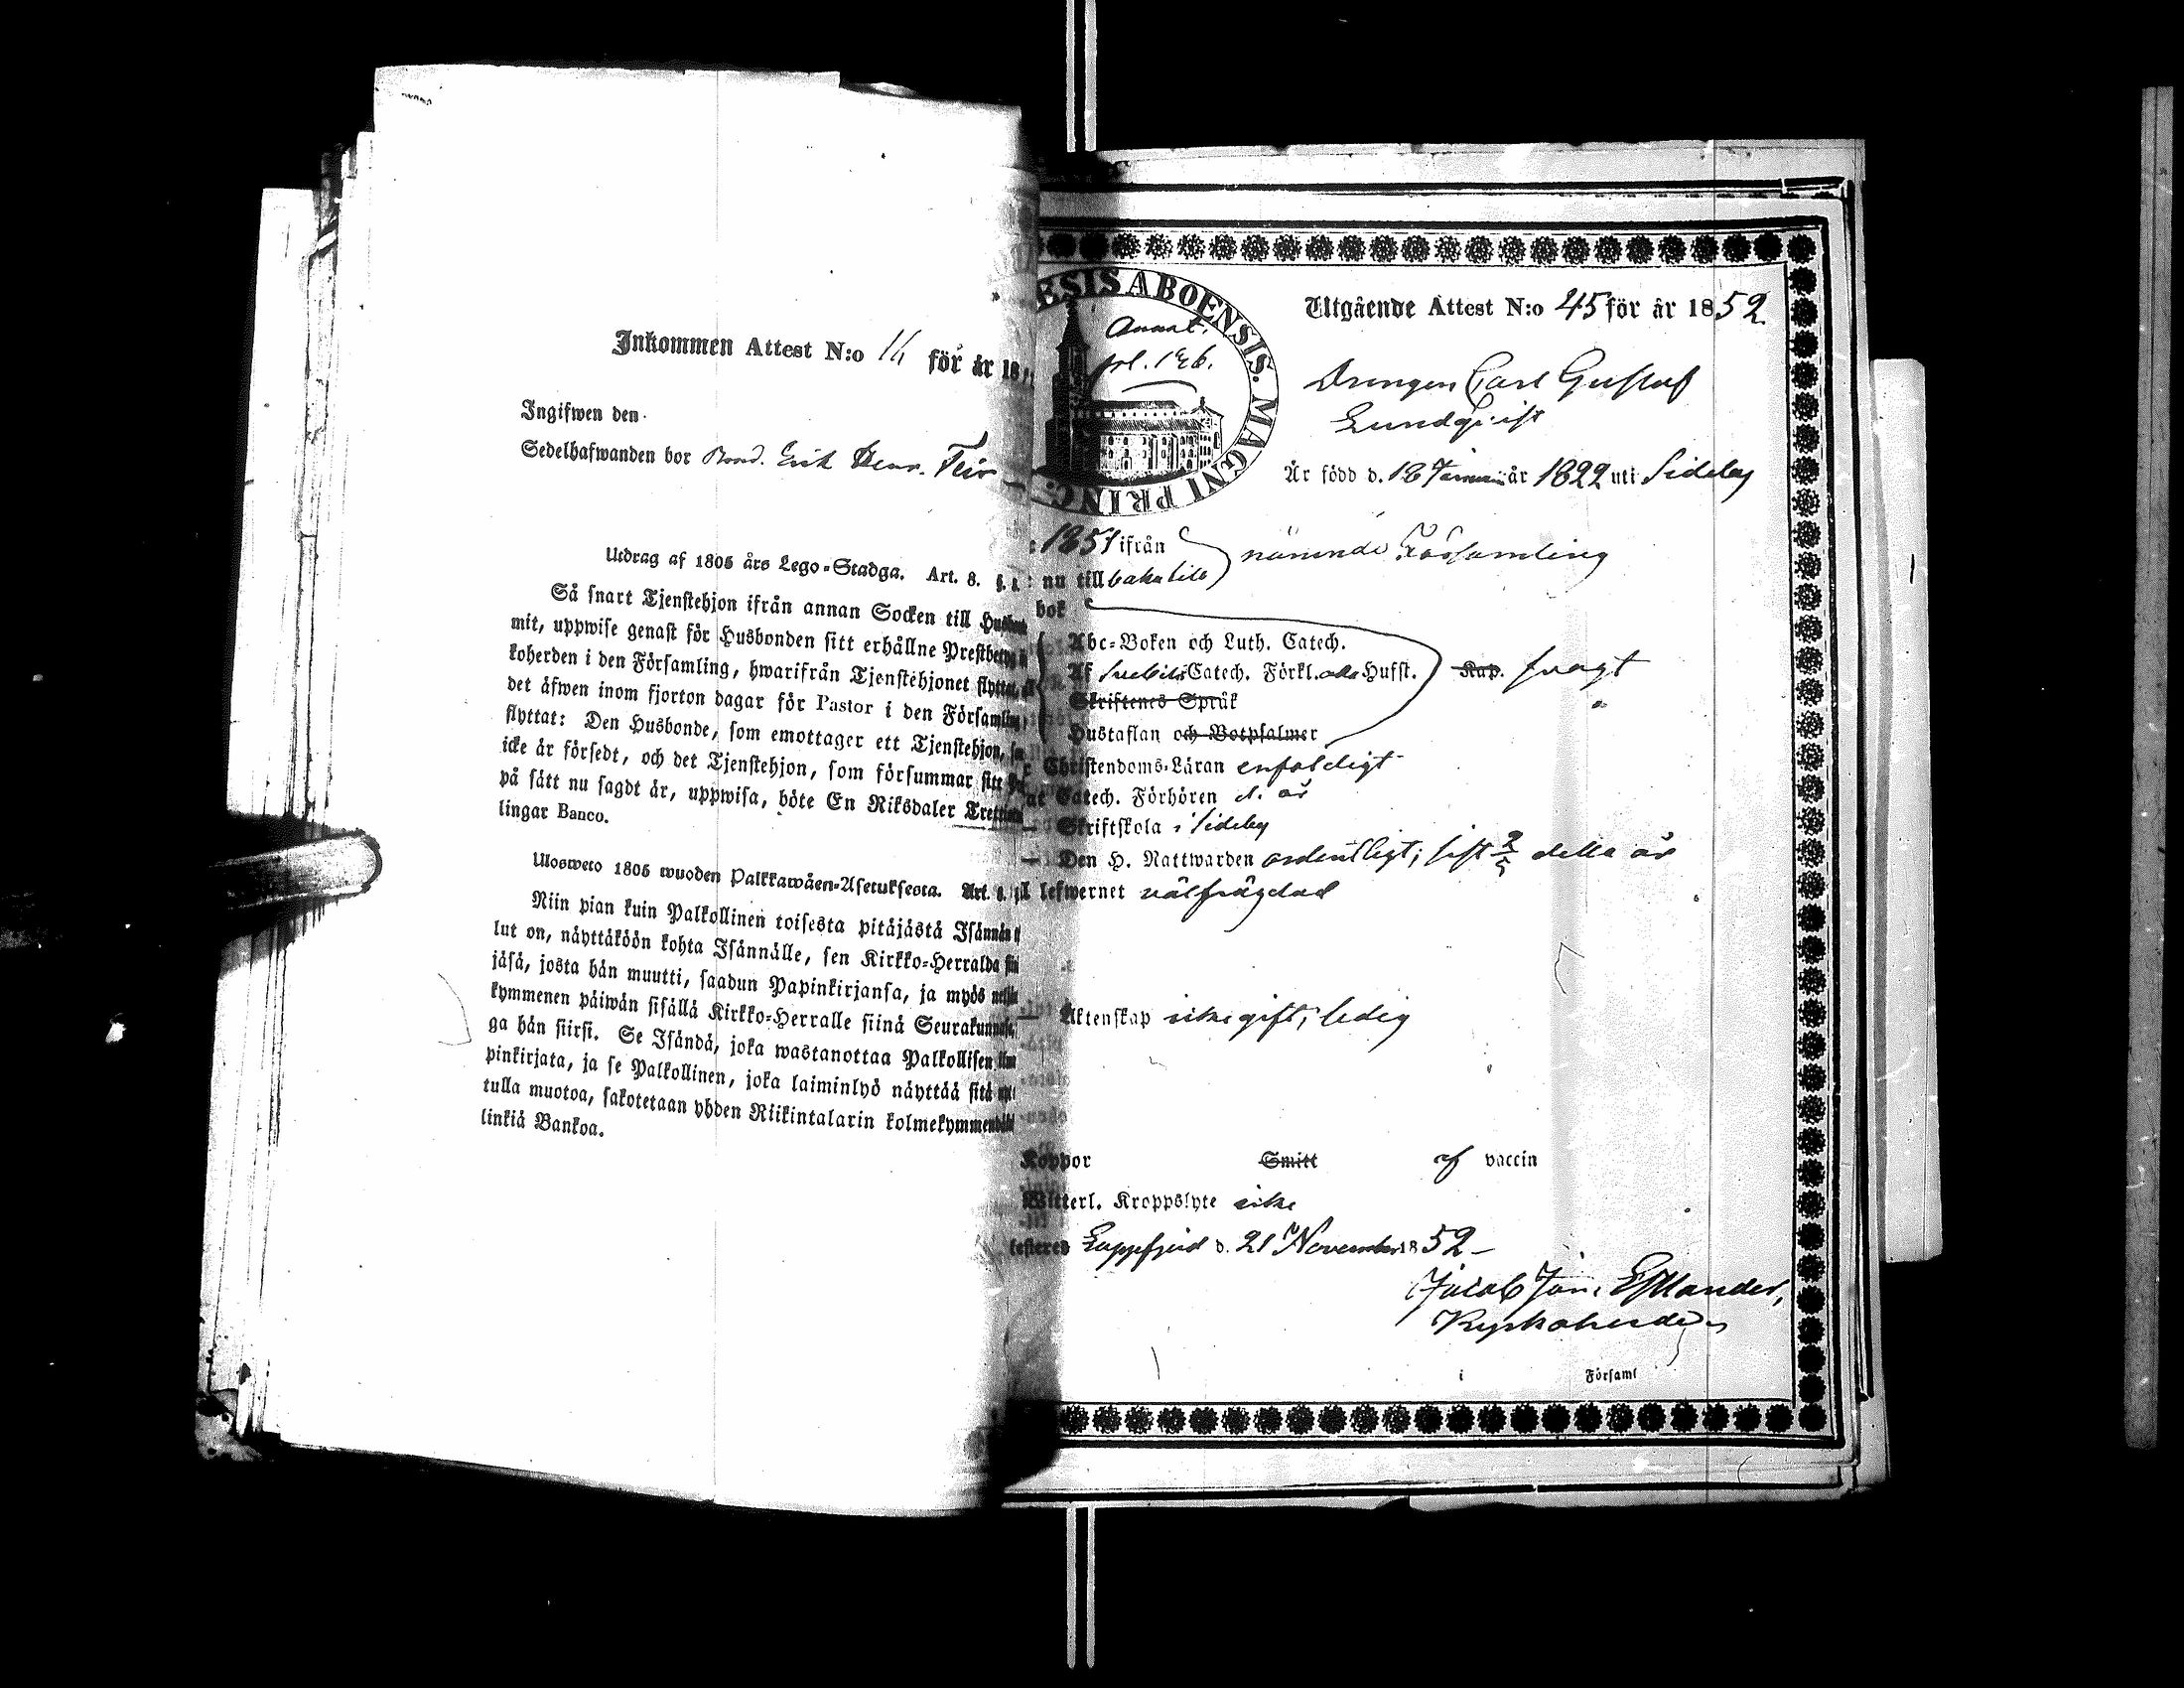 Inkommen Attest N:o 16 för år 18
Ingifwen den
Sedelhafwanden bor Bond. Erik Henr. Feir
Utdrag af 1805 års Lego-Stadga. Art. 8.
Så snart Tjenstehjon ifrån annan Socken till
mit, uppwise genast för Husbonden sitt erhållne
koherden i den Församling, hwarifrån Tjenstehjonet
det äfwen inom fjorton dagar för Pastor i den
flyttat: Den Husbonde, som emottager ett Tjenstehjon,
icke är försedt, och det Tjenstehjon, som försummar sitt
på sätt nu sagdt är, uppwisa, böte En Riksdaler
lingar Banco.
Ulosweto 1805 wuoden Palkkawäen-Asetuksesta. Art. 8.
Niin pian kuin Palkollinen toisesta pitäjästä Isännän
lut on, näyttäköön kohta Isännälle, sen Kirkko-Herralda
jäsä, josta hän muutti, saadun Papinkirjansa, ja myös
kymmenen päiwän sisällä Kirkko-Herralle siinä
ga hän siirsi. Se Isändä, joka wastanottaa Palkollisen
pinkirjata, ja se Palkollinen, joka laiminlyö näyttää sitä
tulla muotoa, sakotetaan yhden Riikintalarin
linkiä Bankoa.
ESIS ABOENSIS. MAGNI PRINC.
Annot.
fol. 126.
Utgående Attest N:o 45 för år 1852
Drengen Carl Gustaf
Lundqvist
Är född d. 18 Januari år 1822 uti Sideby
1851 ifrån
nu till baka till
närmde Församling
bok
Abc-Boken och Luth. Catech.
Af Svebilii Catech. Förkl. alla Hufst. Kap. svagt
Skriftenes Språk
Hustaflan och Botpsalmer
Christendoms-Läran enfaldigt
Catech. Förhören d. år
Skriftskola i Sideby
Den H. Nattwarden ordentligt; sist 2/5 detta år
lefwernet välfrägdad
Äktenskap icke gift, ledig
Koppor Smitt af vaccin
Witterl. Kroppslyte icke
Lappfjerd d. 21 November 1852
Jacob Joh. Estlander,
Kyrkoherde
i Församl